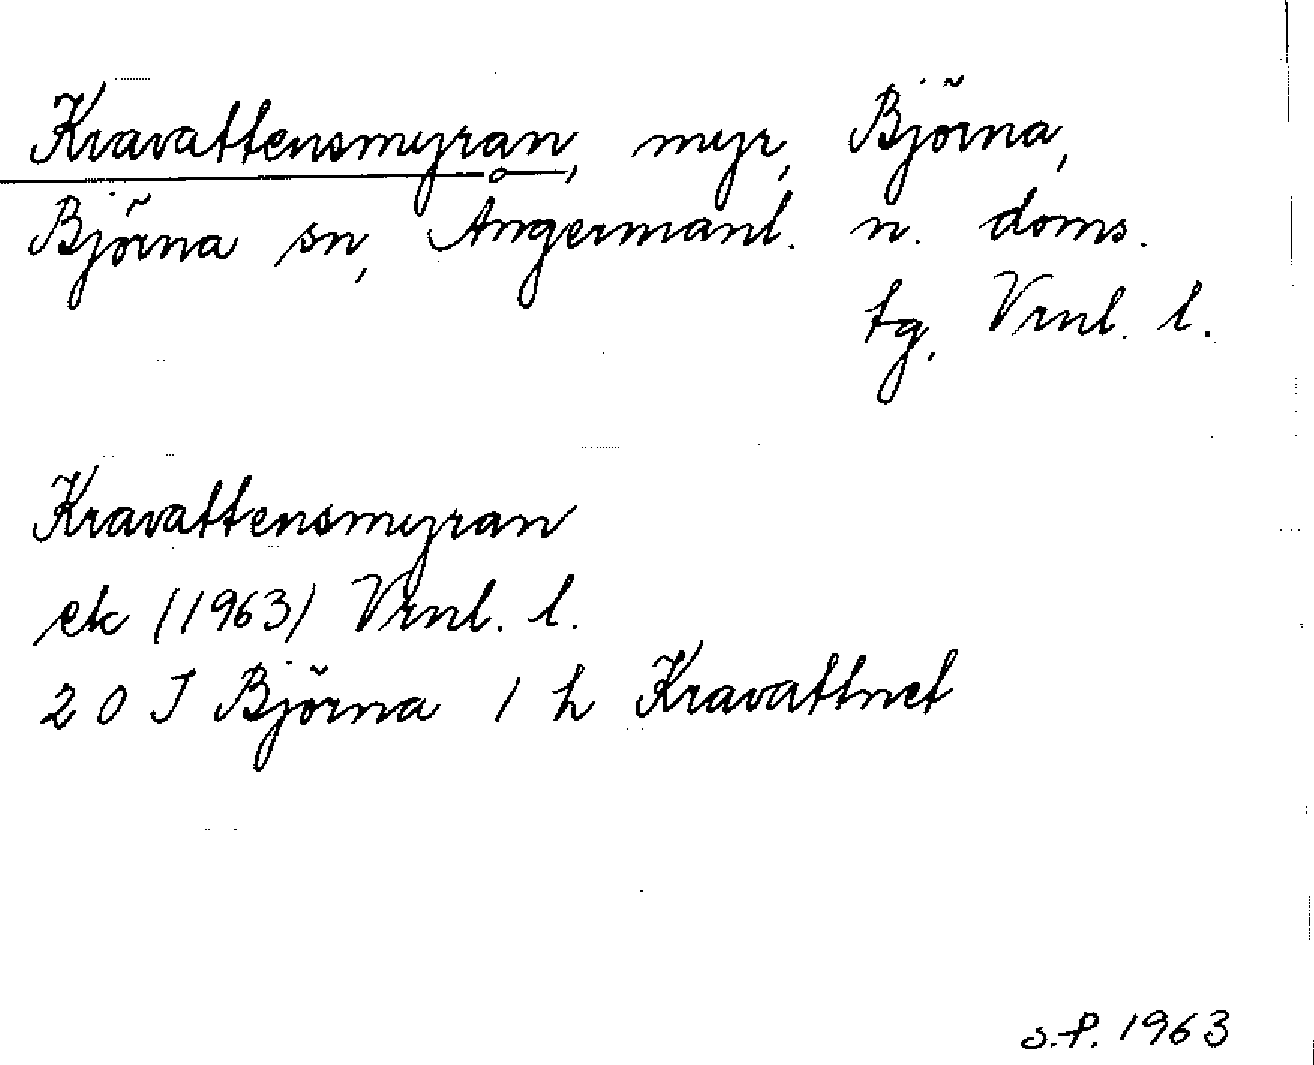 Kravattensmyran, myr, Björna,
Björna sn, Ångermanl. n. doms.
tg, Vrnl. l.
Kravattensmyran
ek (1963) Vrnl. l.
20 J Björna 1 h Kravattnet
S.P. 1963